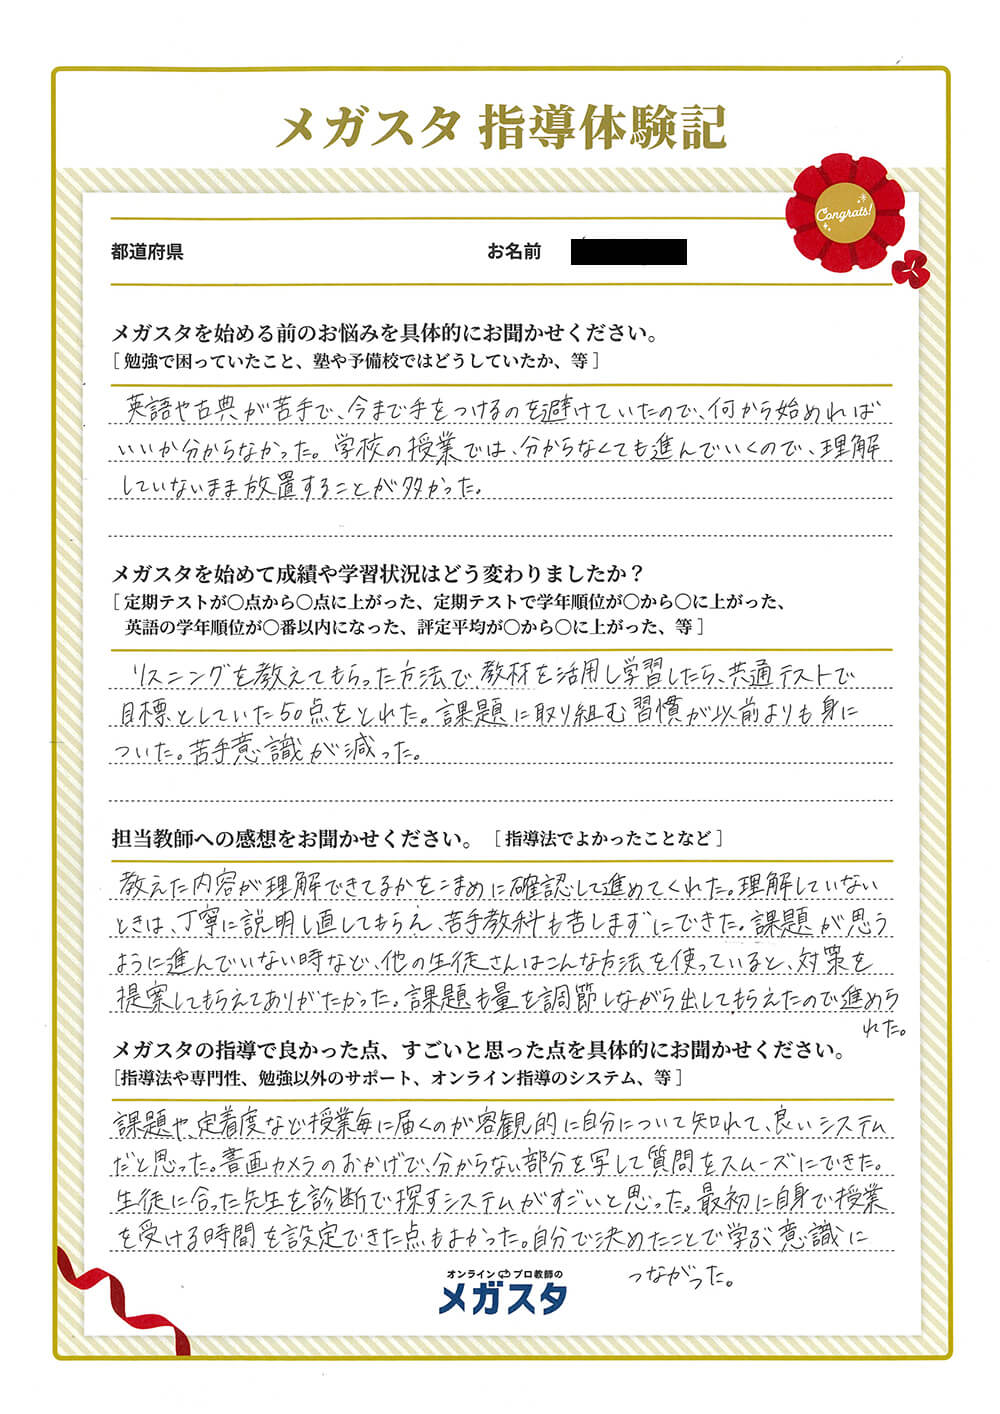 メガスタ 指導体験記
Congrats!
都道府県 お名前
メガスタを始める前のお悩みを具体的にお聞かせください。
[ 勉強で困っていたこと、塾や予備校ではどうしていたか、等 ]
英語や古典が苦手で、今まで手をつけるのを避けていたので、何から始めれば
いいか分からなかった。学校の授業では、分からなくても進んでいくので、理解
していないまま放置することが多かった。
メガスタを始めて成績や学習状況はどう変わりましたか？
[ 定期テストが〇点から〇点に上がった、定期テストで学年順位が〇から〇に上がった、
英語の学年順位が〇番以内になった、評定平均が〇から〇に上がった、等 ]
リスニングを教えてもらった方法で、教材を活用し学習したら、共通テストで
目標としていた50点をとれた。課題に取り組む習慣が以前よりも身に
ついた。苦手意識が減った。
担当教師への感想をお聞かせください。 [ 指導法でよかったことなど ]
教えた内容が理解できてるかをこまめに確認して進めてくれた。理解していない
ときは、丁寧に説明し直してもらえ、苦手教科も苦しまずにできた。課題が思う
ように進んでいない時など、他の生徒さんはこんな方法を使っていると、対策を
提案してもらえてありがたかった。課題も量を調節しながら出してもらえたので進めら
れた。
メガスタの指導で良かった点、すごいと思った点を具体的にお聞かせください。
[指導法や専門性、勉強以外のサポート、オンライン指導のシステム、等 ]
課題や、定着度など授業毎に届くのが客観的に自分について知れて、良いシステム
だと思った。書画カメラのおかげで、分からない部分を写して質問をスムーズにできた。
生徒に合った先生を診断で探すシステムがすごいと思った。最初に自身で授業
を受ける時間を設定できた点もよかった。自分で決めたことで学ぶ意識に
つながった。
オンライン プロ教師の
メガスタ